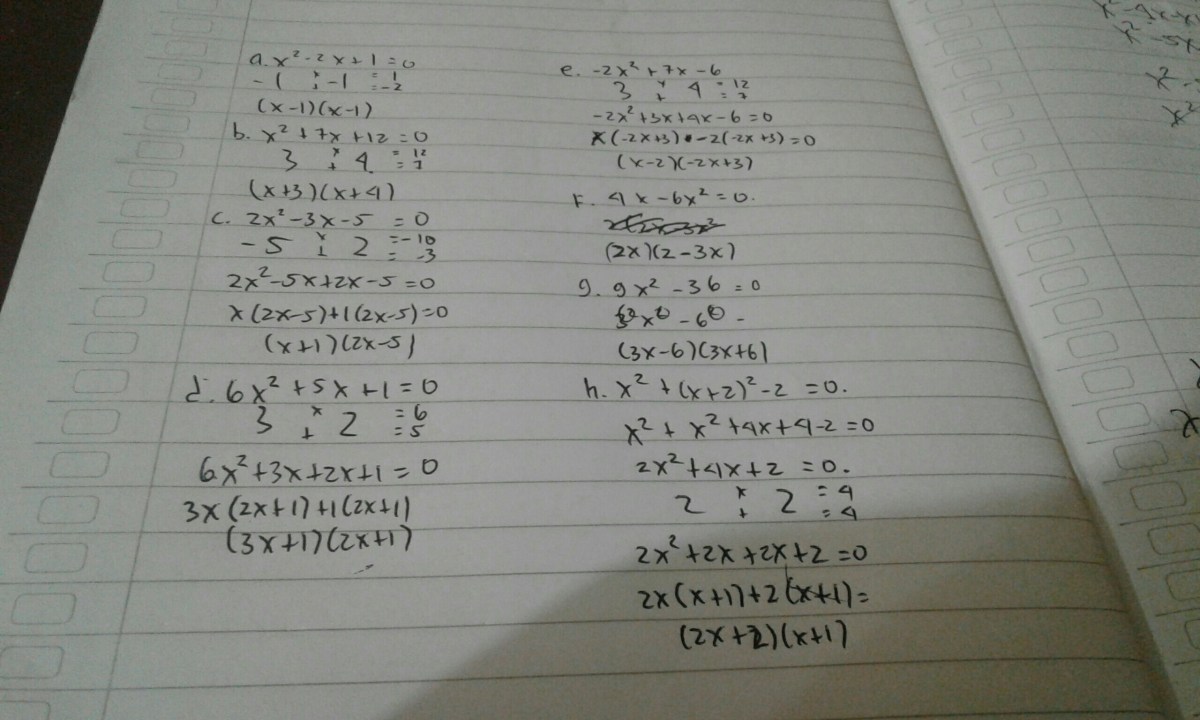 a. x² - 2x + 1 = 0
-1 × -1 = 1
+ = -2
(x-1)(x-1)
b. x² + 7x + 12 = 0
3 × 4 = 12
+ = 7
(x+3)(x+4)
c. 2x² - 3x - 5 = 0
-5 × 2 = -10
+ = -3
2x² - 5x + 2x - 5 = 0
x(2x-5)+1(2x-5)=0
(x+1)(2x-5)
d. 6x² + 5x + 1 = 0
3 × 2 = 6
+ = 5
6x² + 3x + 2x + 1 = 0
3x(2x+1)+1(2x+1)
(3x+1)(2x+1)
e. -2x² + 7x - 6
3 × 4 = 12
+ = 7
-2x² + 3x + 4x - 6 = 0
x(-2x+3) - 2(-2x+3) = 0
(x-2)(-2x+3)
f. 4x - 6x² = 0.
(2x)(2-3x)
g. 9x² - 36 = 0
(3x-6)(3x+6)
h. x² + (x+2)² - 2 = 0.
x² + x² + 4x + 4 - 2 = 0
2x² + 4x + 2 = 0.
2 × 2 = 4
+ = 4
2x² + 2x + 2x + 2 = 0
2x(x+1)+2(x+1)=
(2x+2)(x+1)
x² - 5x
x²